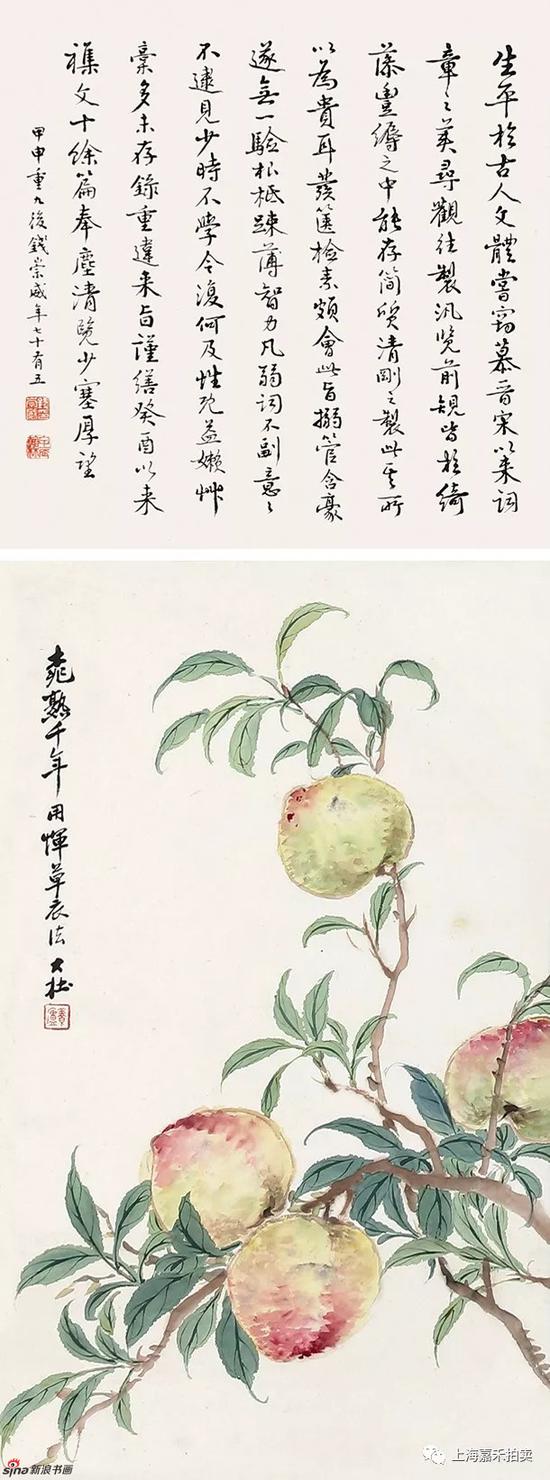 生平於古人文體嘗竊慕晉宋以来詞
章之美尋觀往製汎覽前規皆於綺
藻豐縟之中能存简质清剛之製此其所
以為貴耳發箧檢素頗會此旨搦管含豪
遂無一驗根柢疎薄智力凡弱詞不副意之
不逮見少時不學今復何及性既益嬾艸
稾多未存錄重違来旨謹繕癸酉以来
襍文十馀篇奉塵清覽少塞厚望
甲申重九後錢崇威年七十有五
桃熟千年用惲草衣法大壯
sina新浪书画
上海嘉禾拍卖